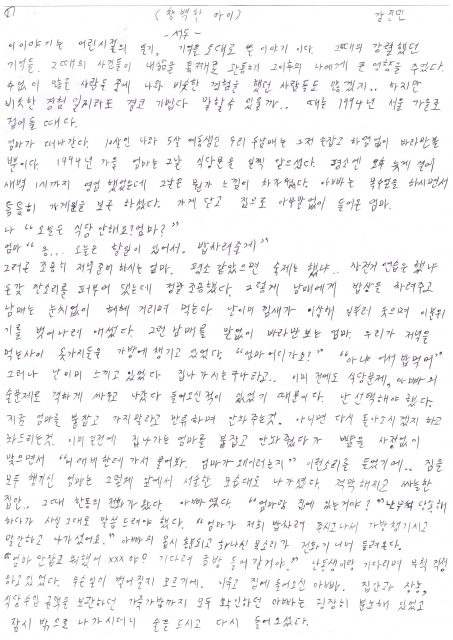 (창백한 아이) 김진민
-서두-
이 이야기는 어린시절의 일기, 기억을 토대로 쓴 이야기 이다. 그때의 강렬했던
기억들. 그때의 사건들이 내 삶을 통째로 관통해 그이후의 나에게 큰 영향을 주었다.
수없이 많은 사람들 중에 나와 비슷한 경험을 했던 사람들도 많겠지.. 하지만
비슷한 경험 일지라도 결코 가볍다 말할수 있을까.. 때는 1994년 서울 가을로
접어들 때다.
엄마가 떠나간다. 10살인 나와 5살 여동생인 우리 두남매는 그저 손잡고 하염없이 바라만볼
뿐이다. 1994년 가을 엄마는 그날 식당문을 일찍 닫으셨다. 평소엔 오후 늦게 열어
새벽 1시까지 영업 했었는데 그날은 뭔가 느낌이 이상했다. 아빠는 목수일을 하시면서
틈틈히 가게일을 보곤 하셨다. 가게 닫고 집으로 아무말없이 들어온 엄마.
나 "오늘은 식당 안해요? 엄마?"
엄마 "응... 오늘은 할일이 있어서. 밥차려줄게"
그러곤 조용히 저녁준비 하시는 엄마. 평소 같았으면 숙제는 했냐.. 자전거 연습은 했냐
온갖 잔소리를 퍼부어 있는데 정말 조용했다. 그렇게 남매에게 밥상을 차려주고
남매는 눈치없이 헤헤 거리며 먹는다. 난 이미 낌새가 이상해 일부러 웃으며 이분위
기를 벗어나려 애썼다. 그런 남매를 말없이 바라만 보는 엄마. 우리가 저녁을
먹는사이 옷가지들을 가방에 챙기고 있었다. "엄마 어디가요?" "아냐 어서 밥먹어"
그러나 난 이미 느끼고 있었다. 집 나가시는구나 라고.. 이미 전에도 식당문제, 아빠의
술문제로 격하게 싸우고 나갔다 들어오신적이 있었기 때문이다. 난 선택해야 했다.
지금 엄마를 붙잡고 가지말라고 만류하며 안놔주는것. 아니면 다시 돌아오시겠지 하고
놔드리는것. 이미 오전에 집나가는 엄마를 붙잡고 안놔줬다가 뺨을 사정없이
맞으면서 "니 애비한테 가서 물어봐. 엄마가 왜이러는지" 이런소리를 들었기에.. 짐을
모두 챙기신 엄마는 그렇게 앞에서 서술한 모습대로 나가셨다. 적막해지고 싸늘한
집안.. 그때 한통의 전화가 왔다. 아빠였다. "엄마랑 집에 있는거야?" 난 무척 당혹해
하다가 사실 그대로 말씀 드려야 했다. "엄마가 저희 밥차려 주시고나서 가방챙기시고
말안하고 나가셨어요." 아빠의 몹시 흥분되고 화나신 목소리가 전화기 너머 들려온다.
"엄마 안잡고 뭐했어 xxx야!! 기다려 금방 들어갈거야." 난 동생이랑 기다리며 무척 걱정
하고 있었다. 무슨일이 벌어질지 모르기에. 이윽고 집에 들어오신 아빠. 집안과 장농,
식당수입 금액을 보관하던 가죽가방까지 모두 확인하던 아빠는 굉장히 분노해 있었고
잠시 밖으로 나가시더니 술을 드시고 다시 들어오셨다.